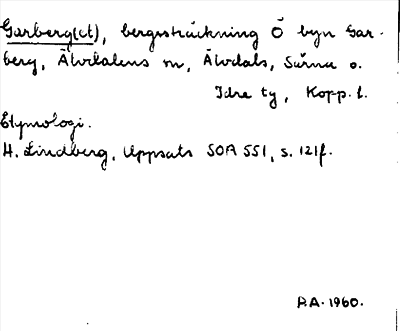 Garberg(et), bergssträckning Ö byn Gar-
berg, Älvdalens sn, Älvdals, Särna o.
Idre tg, Kopp. l.
Etymologi.
H. Lindberg, Uppsats SOA 551, s. 121f.
P.A. 1960.